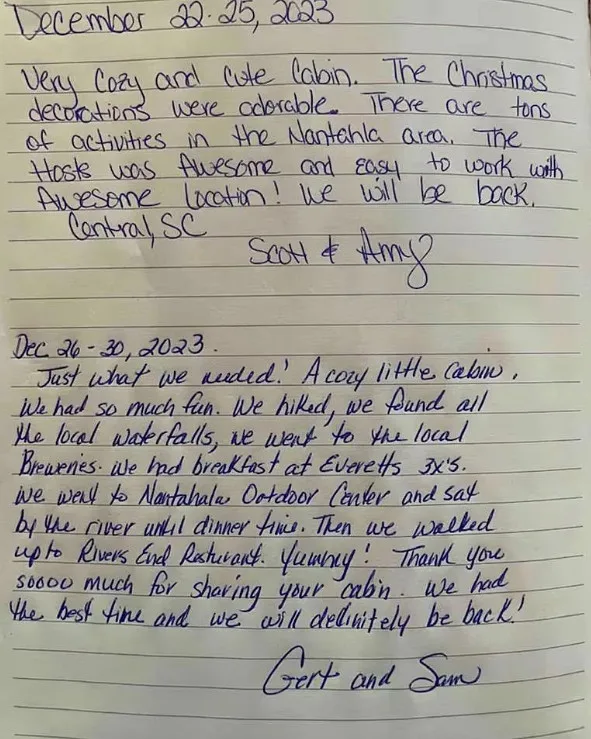 December 22-25, 2023
Very Cozy and Cute Cabin. The Christmas
decorations were adorable. There are tons
of activities in the Nantahla area. The
Hosts was Awesome and easy to work with
Awesome location! We will be back.
Central, SC
Scott & Amy
Dec 26-30, 2023.
Just what we needed! A cozy little cabin.
We had so much fun. We hiked, we found all
the local waterfalls, we went to the local
Breweries. We had breakfast at Everetts 3x's.
We went to Nantahala Outdoor Center and sat
by the river until dinner time. Then we walked
up to Rivers End Resturant. Yummy! Thank you
soooo much for sharing your cabin. We had
the best time and we will definitely be back!
Gert and Sam